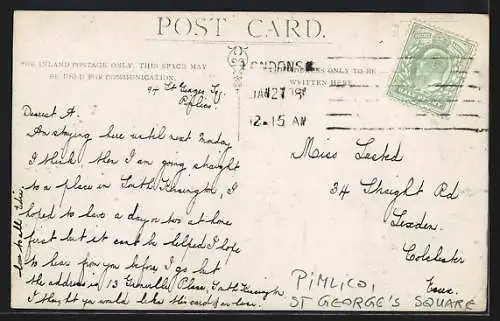 POST CARD.
FOR INLAND POSTAGE ONLY, THIS SPACE MAY
BE USED FOR COMMUNICATION.
ADDRESS ONLY TO BE
WRITTEN HERE.
LONDON S.
JAN 27 08
12-15 AM
94 St Georges Sq
Pimlico.
Dearest A.
Am staying here until next Monday
I think then I am going straight
to a place in South Kensington, I
hoped to have a day or two at home
first but it cant be helped. I hope
to hear from you before I go but
the address is 13 Grenville Place, South Kensington
I thought you would like this card for
love to all
Miss Lusted
34 Straight Rd
Lexden.
Colchester
Essex.
PIMLICO,
ST GEORGE'S SQUARE